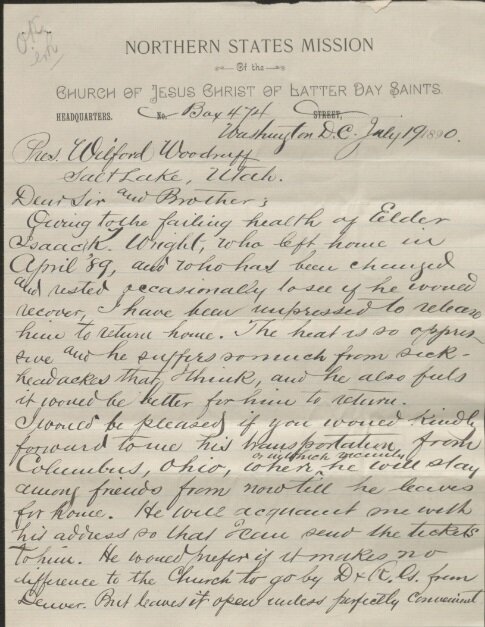 O.K.
NORTHERN STATES MISSION
Of the
CHURCH OF JESUS CHRIST OF LATTER DAY SAINTS.
HEADQUARTERS. No. Box 474 STREET,
Washington D.C. July 19 1890.
Pres. Wilford Woodruff
Salt Lake, Utah.
Dear Sir and Brother;
Owing to the failing health of Elder
Isaac K. Wright, who left home in
April '89, and who has been changed
and rested occasionally to see if he would
recover, I have been impressed to release
him to return home. The heat is so oppres-
sive and he suffers so much from sick-
headackes that I think, and he also feels
it would be better for him to return.
I would be pleased if you would kindly
forward to me his transportation from
Columbus, Ohio, or in which vicinity where he will stay
among friends from now till he leaves
for home. He will acquaint me with
his address so that I can send the tickets
to him. He would prefer if it makes no
difference to the Church to go by D & R. G. from
Denver. But leaves it open unless perfectly convenient